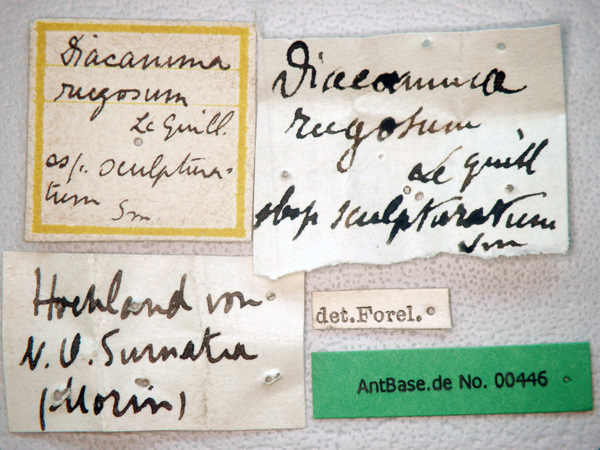 Diacamma
rugosum
Le Guill.
ssp. sculptura-
tum
Sm
Diacamma
rugosum
Le Guill
sbsp sculpturatum
Sm
Hochland von
N. O. Sumatra
(Morin)
det.Forel.
AntBase.de No. 00446